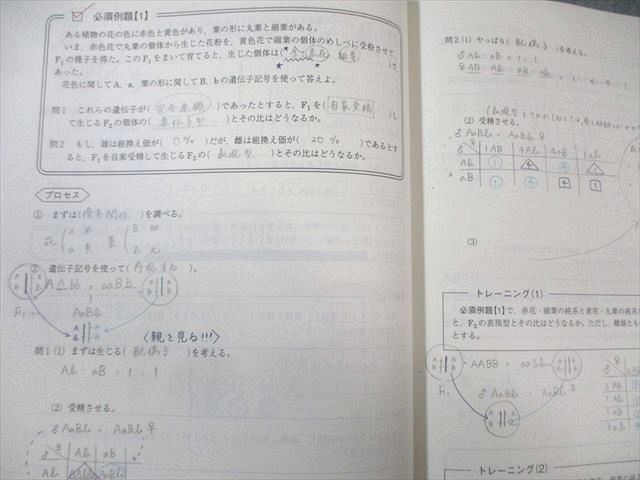 必須例題【1】
ある植物の花の色に赤色と黄色があり、葉の形に丸葉と細葉がある。
いま、赤色花で丸葉の個体から生じた花粉を、黄色花で細葉の個体のめしべに受粉させて、
F₁の種子を得た。このF₁をまいて育てると、生じた個体は(全て赤花 細葉)で
あった。
花色に関してA、a、葉の形に関してB、bの遺伝子記号を使って答えよ。
問1 これらの遺伝子が(完全連鎖)であったとすると、F₁を(自家受精)し
て生じるF₂の個体の(遺伝子型)とその比はどうなるか。
問2 もし、雄は組換え価が(0%)だが、雌は組換え価が(20%)であるとす
ると、F₁を自家受精して生じるF₂の(表現型)とその比はどうなるか。
プロセス
① まずは(優劣関係)を調べる。
② 遺伝子記号を使って( )。
AAbb × aaBB
F₁ AaBb
〈親を見る!!!〉
問1(1) まずは生じる(配偶子)を考える。
Ab : aB = 1 : 1
(2) 受精させる。
♂ AaBb × AaBb ♀
♂ ♀ Ab aB
Ab
問2(1) やっぱり(配偶子)を考える。
♂ Ab : aB = 1 : 1
(2) 受精させる。
♂ AaBb × AaBb ♀
♂ ♀ 1AB 4Ab 4aB 1ab
Ab ① 4 ④ 1
aB ① ④ 4 1
(3)
トレーニング(1)
必須例題【1】で、赤花・細葉の純系と黄花・丸葉の純系
と、F₂の表現型とその比はどうなるか。ただし、雌雄とも
とする。
AABB × aabb
F₁ ♂ AaBb × AaBb
トレーニング(2)